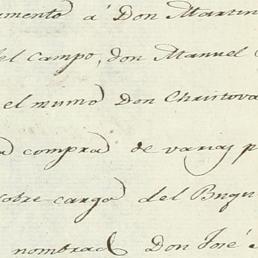 amento á Don Martin
del Campo, don Manuel
el mismo Don Christova
a compra de varias p
sobre cargo del Buqu
nombrad Don José